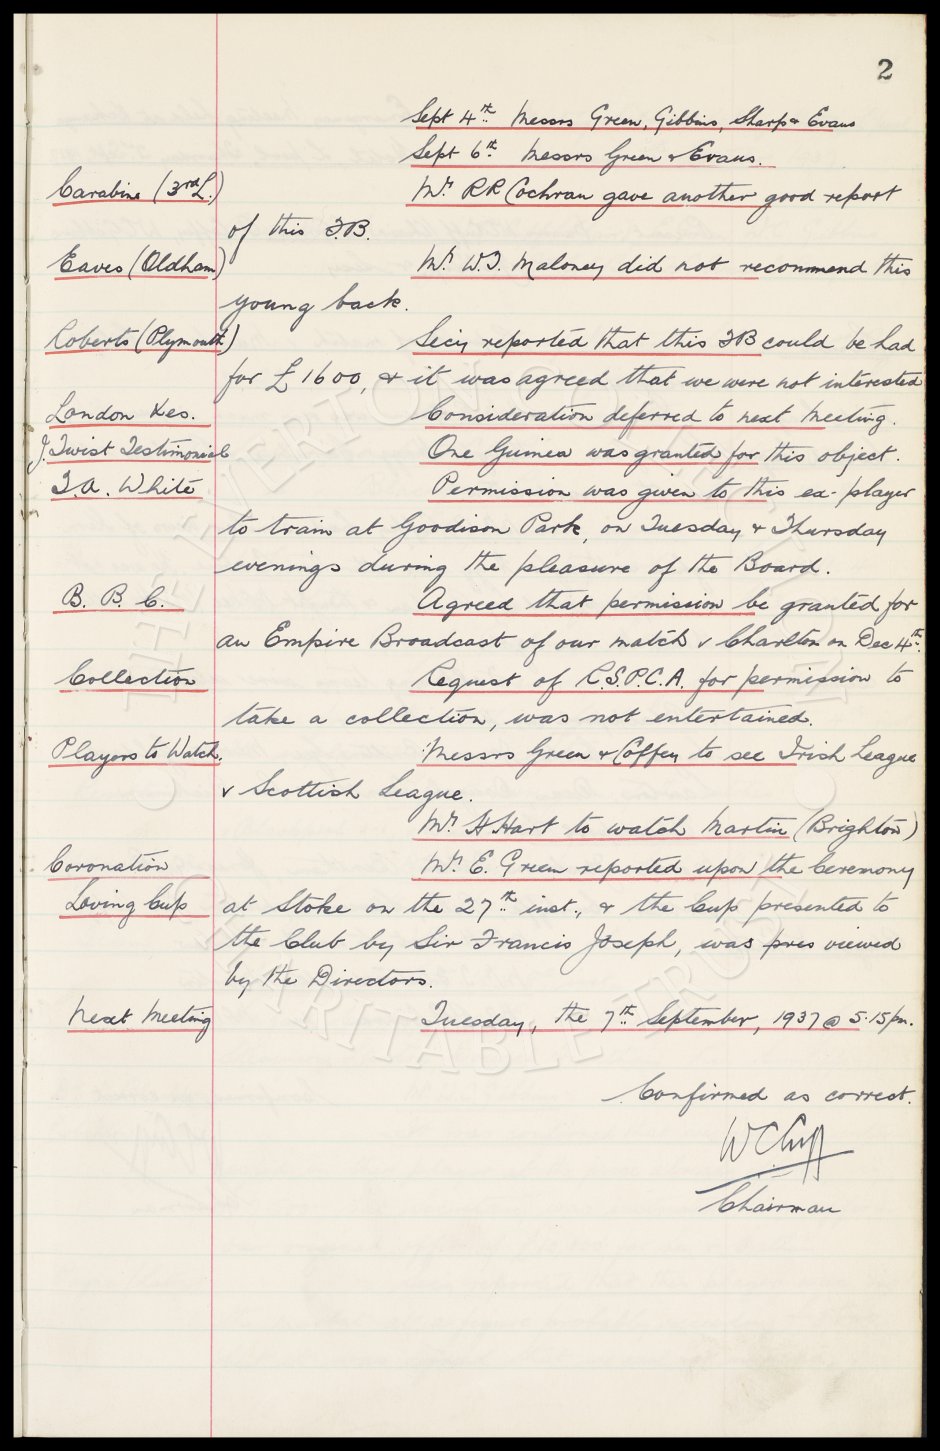 2
Sept 4th Messrs Green, Gibbins, Sharp & Evans
Sept 6th Messrs Green & Evans.
Carabine (3rd L.) Mr RR Cochran gave another good report
of this F.B.
Eaves (Oldham) Mr W.J. Maloney did not recommend this
young back.
Roberts (Plymouth) Secy reported that this FB could be had
for £1600, & it was agreed that we were not interested
London Res. Consideration deferred to next meeting.
J. Twist Testimonial One Guinea was granted for this object.
T.A. White Permission was given to this ex-player
to train at Goodison Park, on Tuesday & Thursday
evenings during the pleasure of the Board.
B. B. C. Agreed that permission be granted for
an Empire Broadcast of our match v Charlton on Dec 4th.
Collection Request of R.S.P.C.A. for permission to
take a collection, was not entertained.
Players to Watch. Messrs Green & Coffey to see Irish League
v Scottish League.
Mr H Hart to watch Martin (Brighton)
Coronation Mr E. Green reported upon the Ceremony
Loving Cup at Stoke on the 27th inst., & the Cup presented to
the Club by Sir Francis Joseph, was pres viewed
by the Directors.
Next Meeting Tuesday, the 7th September, 1937 @ 5.15pm.
Confirmed as correct.
W C Cuff
Chairman
THE EVERTON COLLECTION
CHARITABLE TRUST